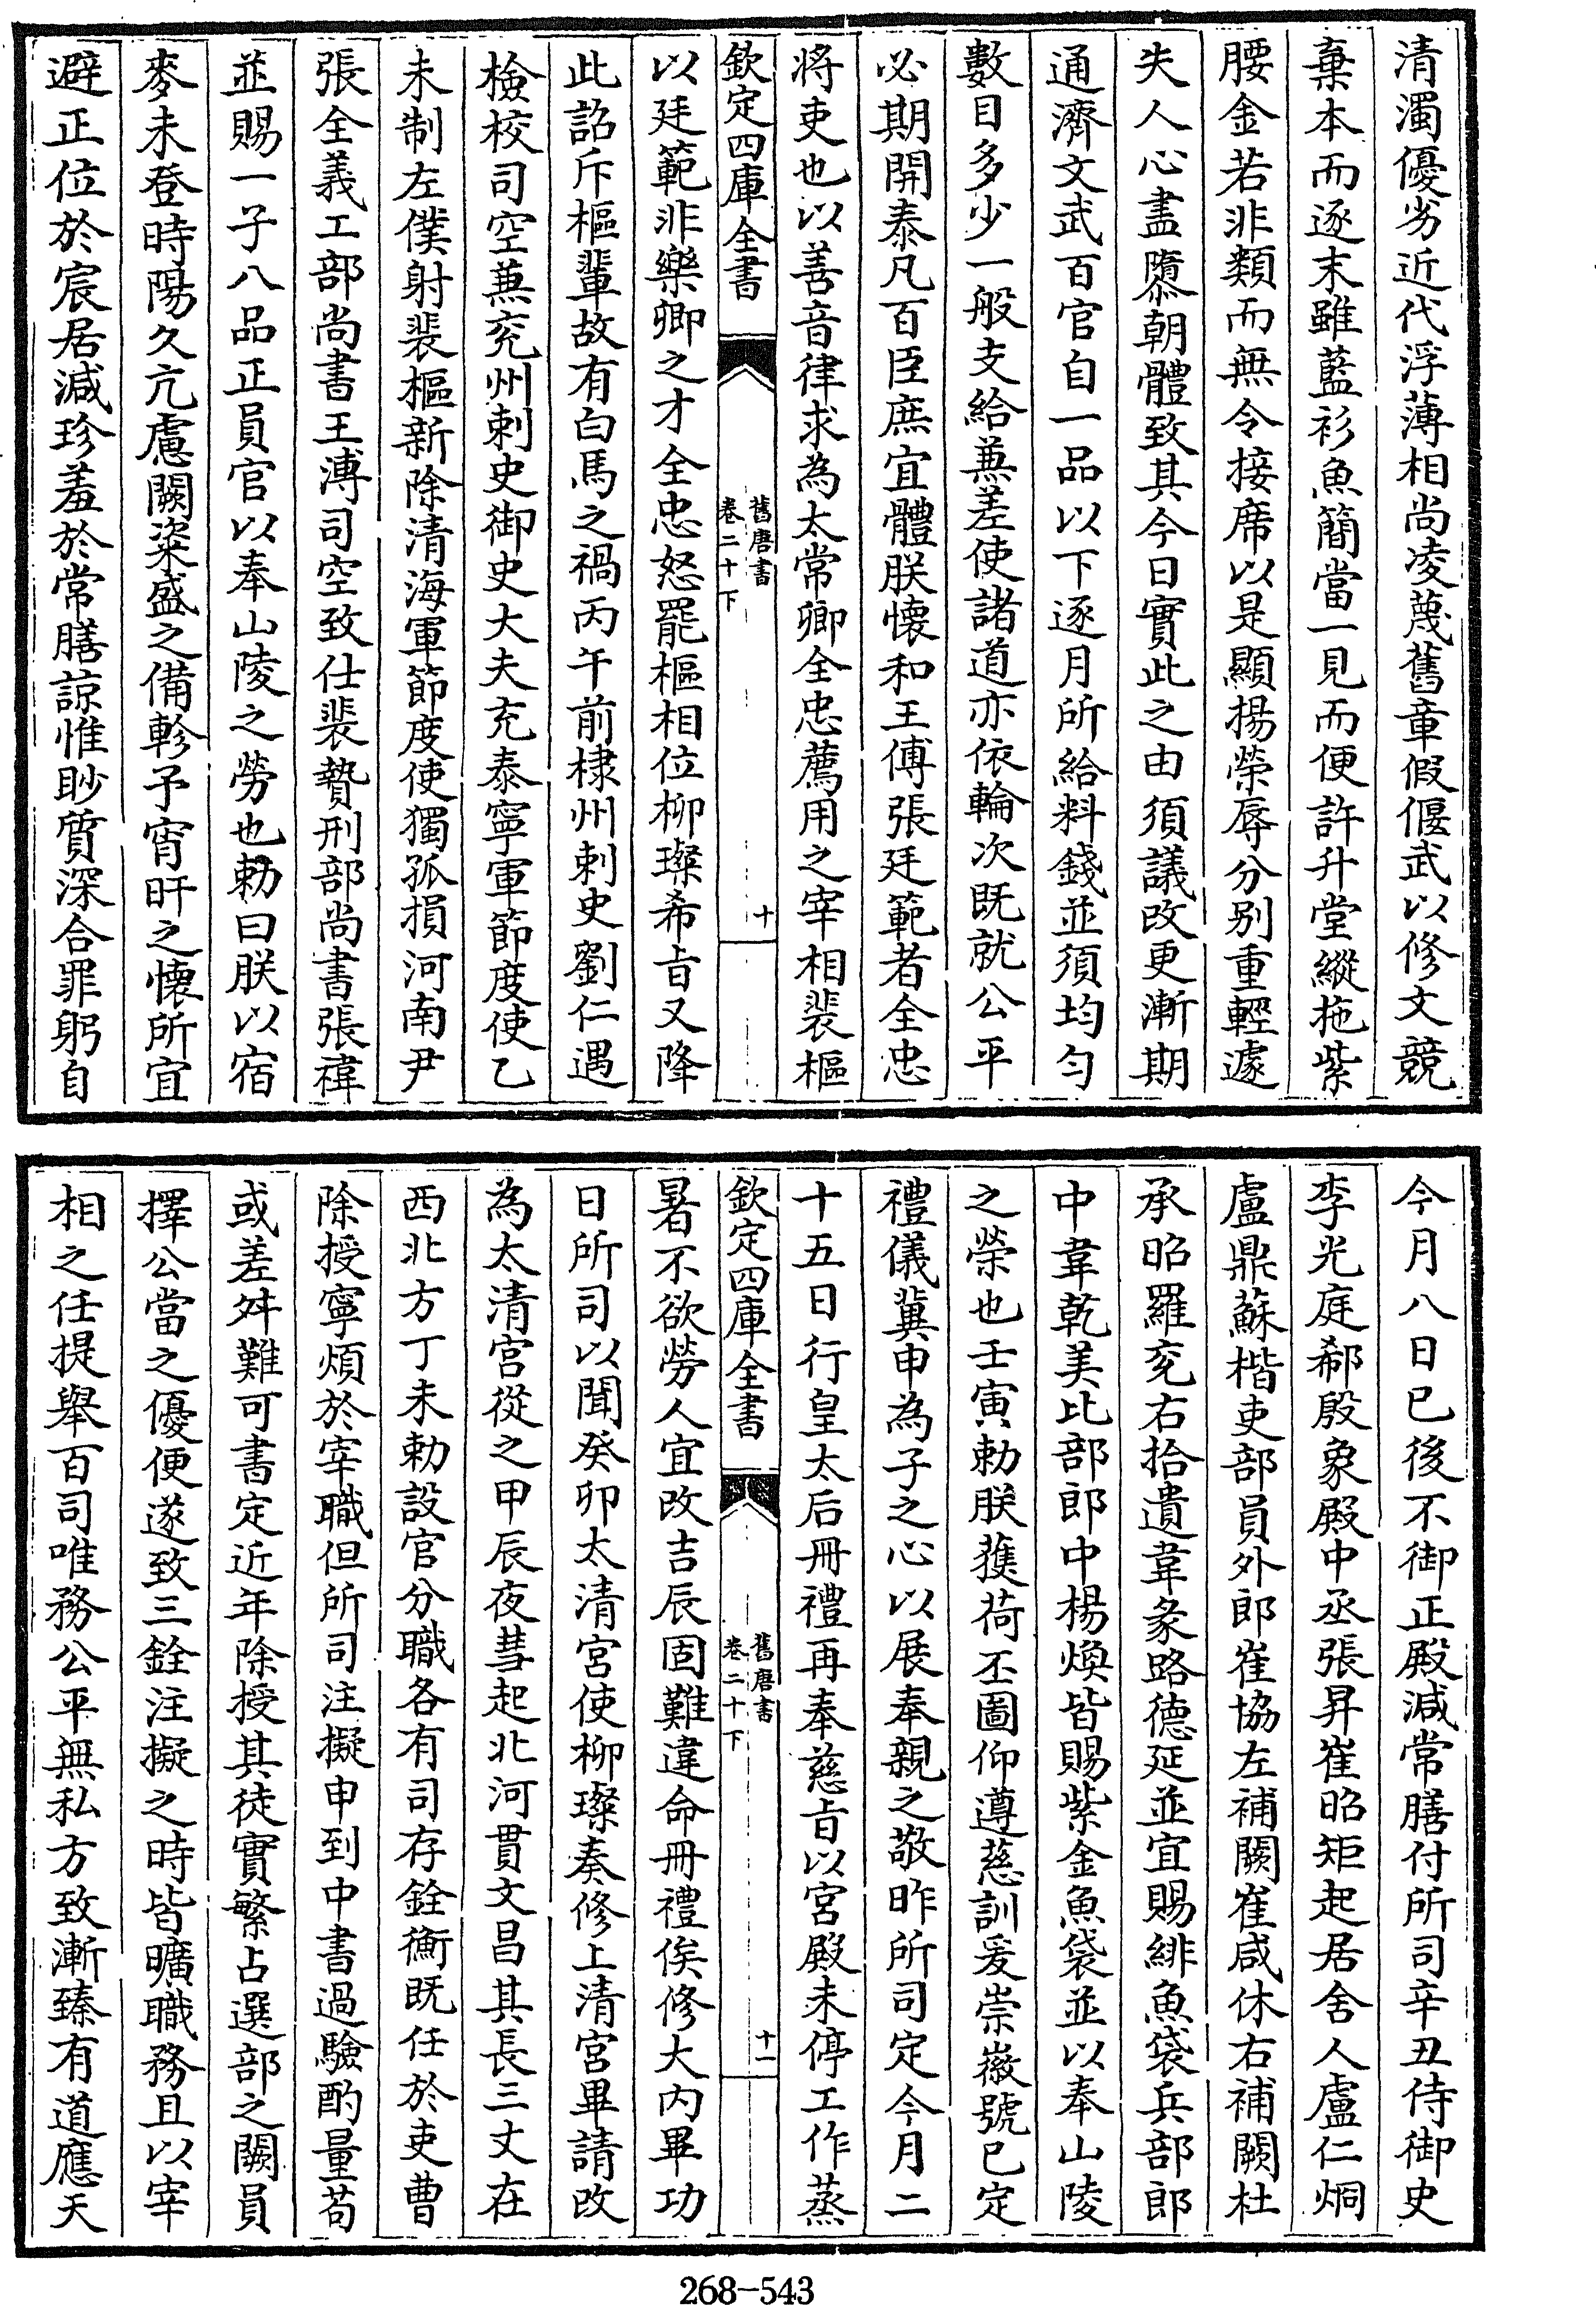 清濁優劣近代浮薄相尚凌蔑舊章假偃武以修文競
棄本而逐末雖藍衫魚簡當一見而便許升堂縱拖紫
腰金若非類而無令接席以是顯揚榮辱分别重輕遽
失人心盡隳朝體致其今日實此之由須議改更漸期
通濟文武百官自一品以下逐月所給料錢並須均勻
數目多少一般支給兼差使諸道亦依輪次既就公平
必期開泰凡百臣庶宜體朕懷和王傅張廷範者全忠
將吏也以善音律求為太常卿全忠薦用之宰相裴樞
欽定四庫全書
舊唐書
卷二十下
十
以廷範非樂卿之才全忠怒罷樞相位柳璨希旨又降
此詔斥樞輩故有白馬之禍丙午前棣州刺史劉仁遇
檢校司空兼兖州刺史御史大夫充泰寧軍節度使乙
未制左僕射裴樞新除清海軍節度使獨孤損河南尹
張全義工部尚書王溥司空致仕裴贄刑部尚書張禕
並賜一子八品正員官以奉山陵之勞也勅曰朕以宿
麥未登時陽久亢慮闕粢盛之備軫予宵旰之懷所宜
避正位於宸居減珍羞於常膳諒惟眇質深合罪躬自
今月八日已後不御正殿減常膳付所司辛丑侍御史
李光庭郗殷象殿中丞張昇崔昭矩起居舍人盧仁烱
盧鼎蘇楷吏部員外郎崔協左補闕崔咸休右補闕杜
承昭羅兖右拾遺韋彖路德延並宜賜緋魚袋兵部郎
中韋乾美比部郎中楊煥皆賜紫金魚袋並以奉山陵
之榮也壬寅勅朕獲荷丕圖仰遵慈訓爰崇徽號已定
禮儀冀申為子之心以展奉親之敬昨所司定今月二
十五日行皇太后冊禮再奉慈旨以宮殿未停工作蒸
欽定四庫全書
舊唐書
卷二十下
十一
暑不欲勞人宜改吉辰固難違命冊禮俟修大内畢功
日所司以聞癸卯太清宮使柳璨奏修上清宮畢請改
為太清宮從之甲辰夜彗起北河貫文昌其長三丈在
西北方丁未勅設官分職各有司存銓衡既任於吏曹
除授寧煩於宰職但所司注擬申到中書過驗酌量苟
或差舛難可書定近年除授其徒實繁占選部之闕員
擇公當之優便遂致三銓注擬之時皆曠職務且以宰
相之任提舉百司唯務公平無私方致漸臻有道應天
268-543